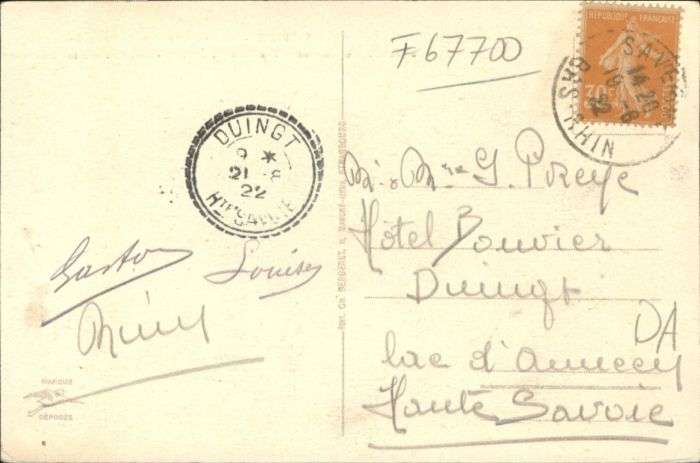 F.67700
RÉPUBLIQUE FRANÇAISE
30c
SAVERNE
14 20
19 -8
BAS RHIN
DUINGT
9 *
21 -8
22
Hte SAVOIE
Gaston Louise
Mr & Mme G. Preye
Hôtel Bouvier
Duingt
DA
lac d'Annecy
Haute Savoie
MARQUE
DÉPOSÉE